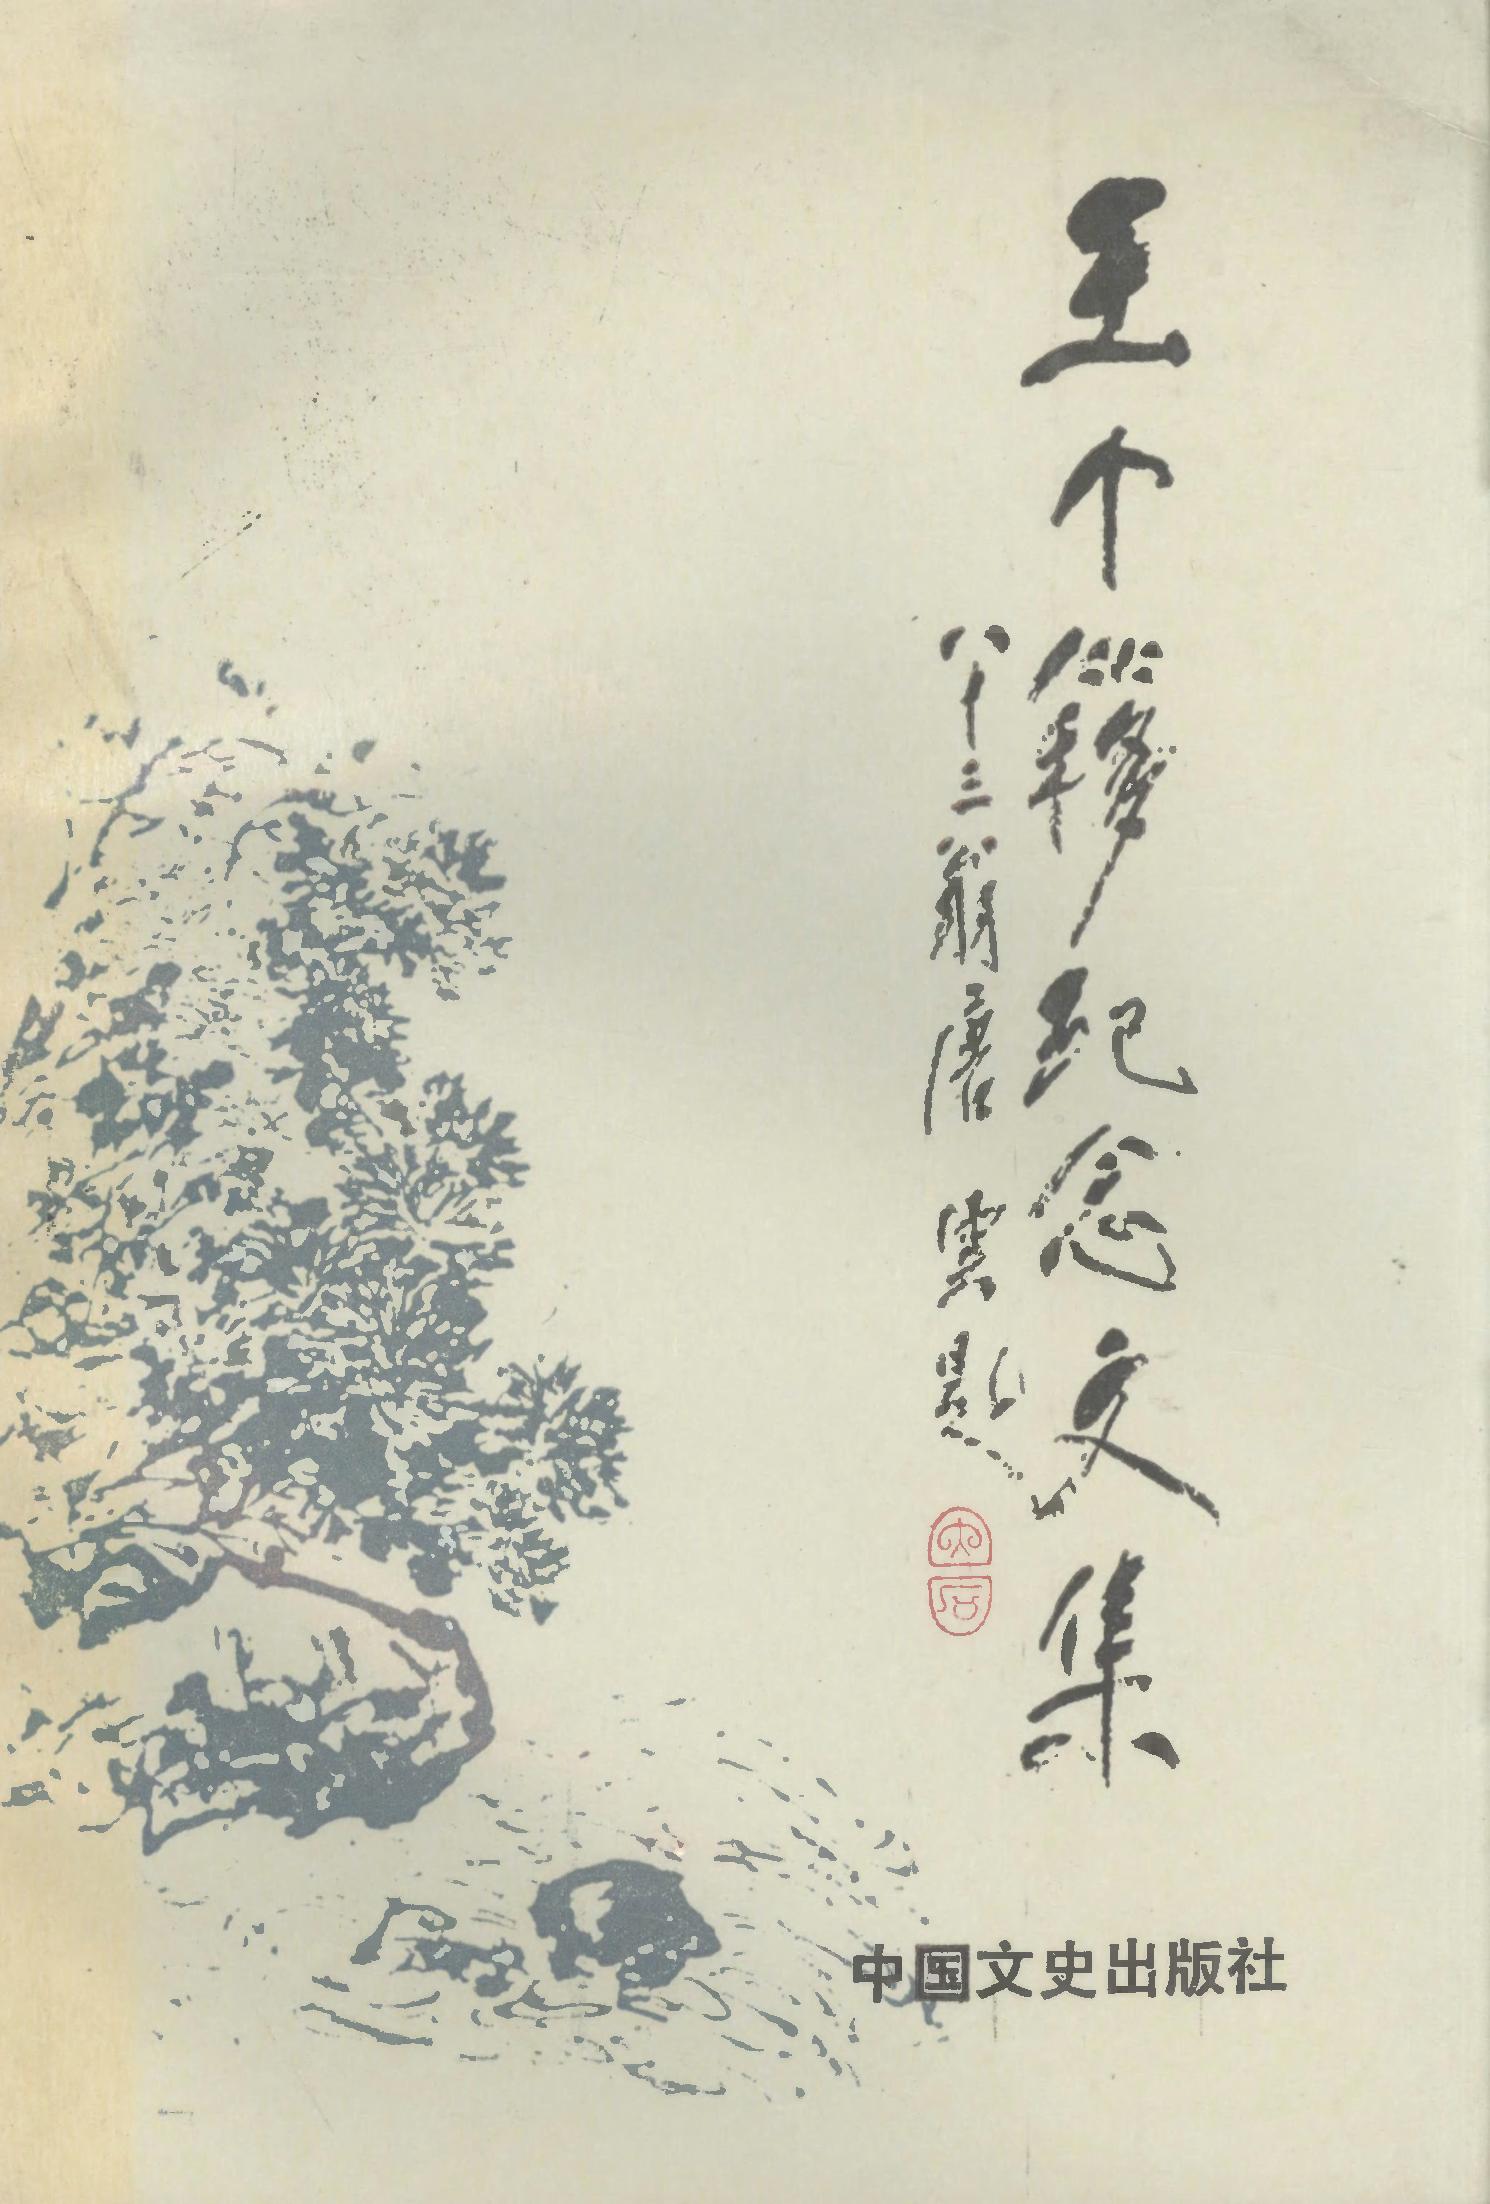 王个簃纪念文集
八十三翁唐雲題
中国文史出版社